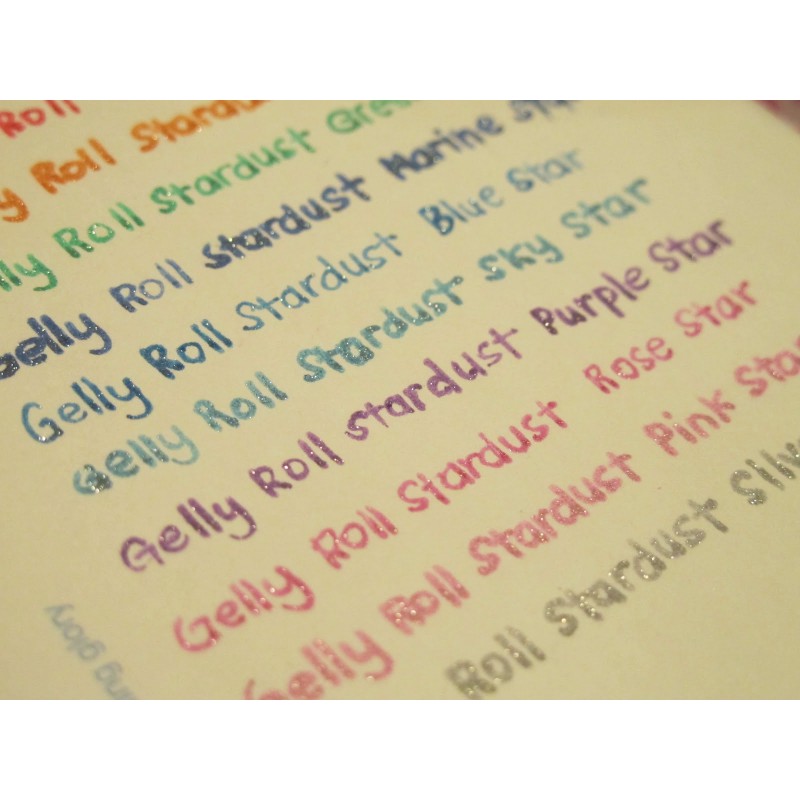 Roll
y Roll Stardus
lly Roll Stardust Gree
Gelly Roll Stardust Marine Sta
Gelly Roll Stardust Blue Star
Gelly Roll Stardust Sky Star
Gelly Roll Stardust Purple Star
Gelly Roll Stardust Rose Star
Gelly Roll Stardust Pink Sta
Roll Stardust Silv
ng glory